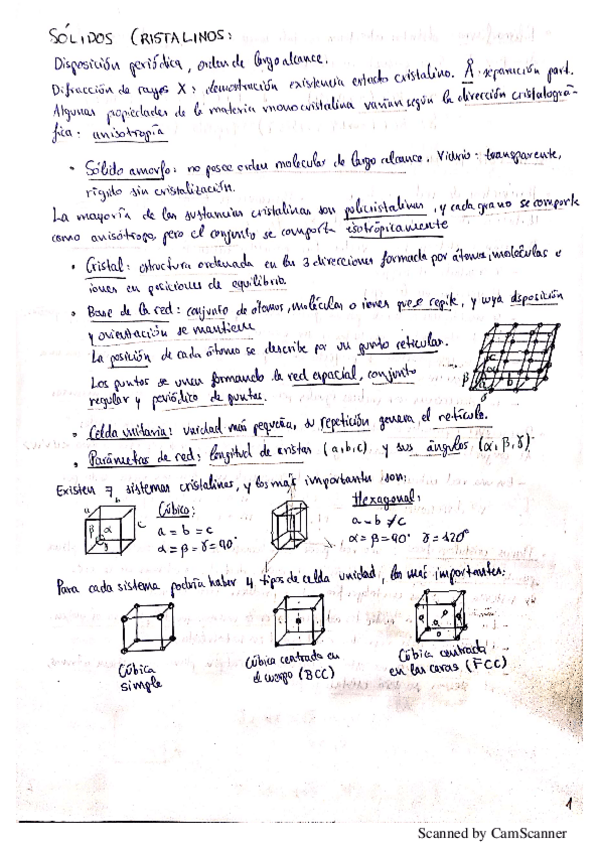 SÓLIDOS CRISTALINOS:
Disposición periódica, orden de largo alcance.
Difracción de rayos X: demostración existencia estado cristalino. Å: separación part.
Algunas propiedades de la materia monocristalina varían según la dirección cristalográ-
fica: anisotropía
• Sólido amorfo: no posee orden molecular de largo alcance. Vidrio: transparente,
rígido sin cristalización.
La mayoría de las sustancias cristalinas son policristalinas, y cada grano se comporta
como anisótropo, pero el conjunto se comporta isotrópicamente
• Cristal: estructura ordenada en las 3 direcciones formada por átomos, moléculas e
iones en posiciones de equilibrio.
• Base de la red: conjunto de átomos, moléculas o iones que se repite, y cuya disposición
y orientación se mantiene
La posición de cada átomo se describe por su punto reticular.
Los puntos se unen formando la red espacial, conjunto
regular y periódico de puntos.
c
α
β a b
γ
• Celda unitaria: unidad más pequeña, su repetición genera el retículo.
• Parámetros de red: longitud de aristas (a,b,c) y sus ángulos (α, β, γ).
Existen 7 sistemas cristalinos, y los más importantes son:
a b c
β α
γ
Cúbico:
a = b = c
α = β = γ = 90°
Hexagonal:
a = b ≠ c
α = β = 90° γ = 120°
Para cada sistema podría haber 4 tipos de celda unidad, los más importantes:
Cúbica
simple
Cúbica centrada en
el cuerpo (BCC)
Cúbica centrada
en las caras (FCC)
1
Scanned by CamScanner